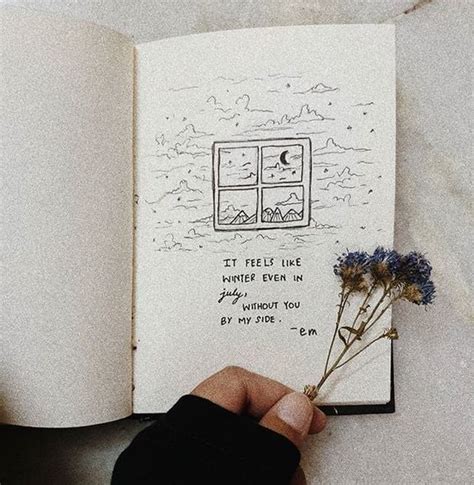 IT FEELS LIKE
WINTER EVEN IN
july,
WITHOUT YOU
BY MY SIDE.
-em